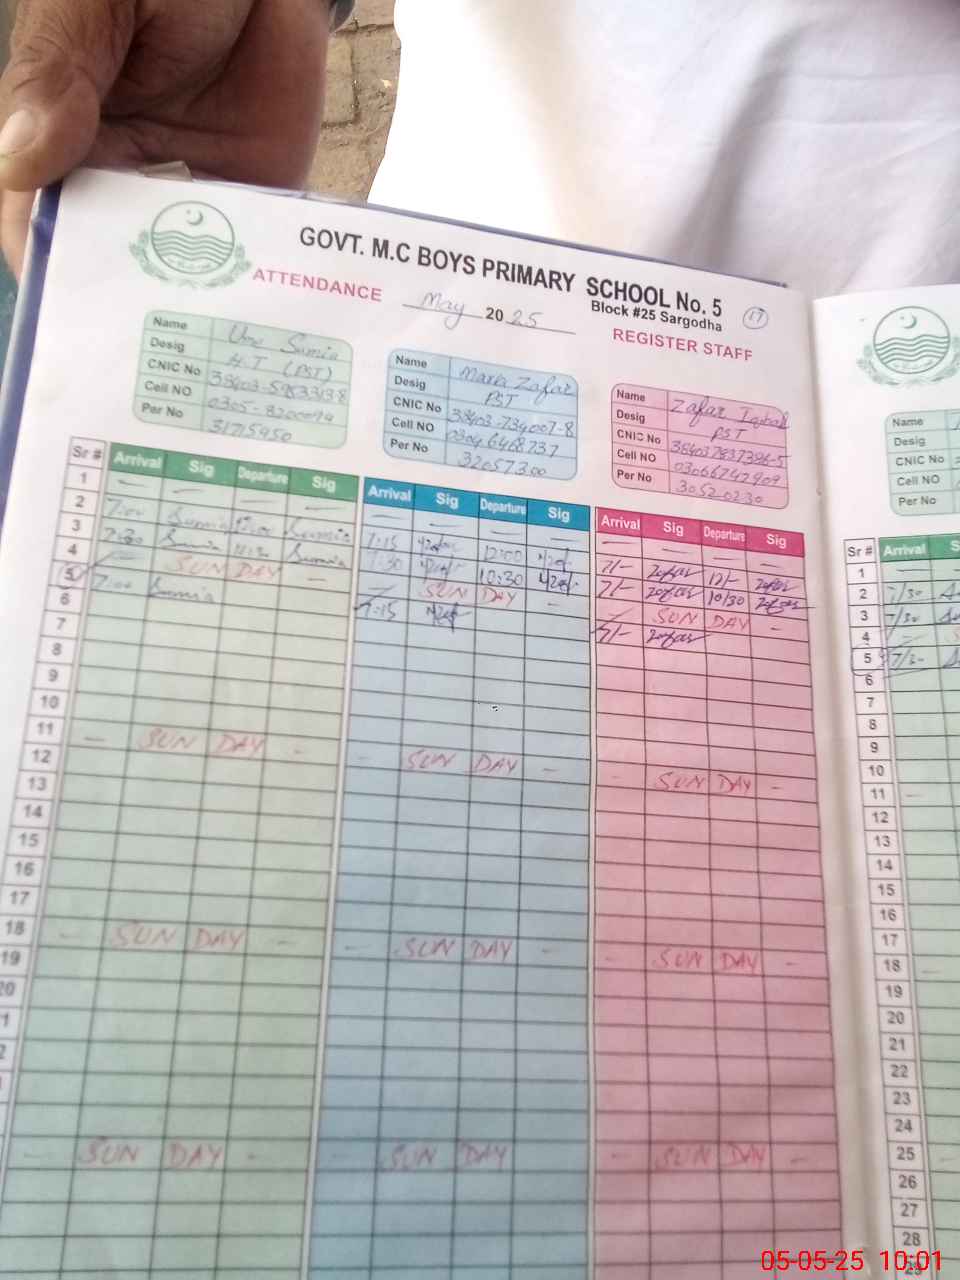 GOVT. M.C BOYS PRIMARY SCHOOL No. 5
Block #25 Sargodha
17
ATTENDANCE May 2025 REGISTER STAFF
Name Ume Sumia
Desig H.T (PST)
CNIC No
Cell NO
Per No 31715950
Name Maria Zafar
Desig PST
CNIC No 38403-734007-8
Cell NO 0304 6468737
Per No 32057300
Name Zafar Iqbal
Desig PST
CNIC No
Cell NO 03066747909
Per No 30520230
Name
Desig
CNIC No
Cell NO
Per No
Sr # Arrival Sig Departure Sig Arrival Sig Departure Sig Arrival Sig Departure Sig Sr # Arrival
1 — — — — — — — — — — — — 1
2 7:00 Sumia 12:00 Sumia 7:15 12:00 7/- Zafar 12/- Zafar 2 7/30
3 7:30 Sumia 11:30 Sumia 7:30 10:30 7/- Zafar 10/30 Zafar 3 7/30
4 — SUN DAY — — SUN DAY — — SUN DAY — 4
5 7:00 Sumia 7:15 7/- Zafar 5 7/30
6 6
7 7
8 8
9 9
10 10
11 — SUN DAY — - SUN DAY — - SUN DAY - 11 —
12 12
13 13
14 14
15 15
16 16
17 17
18 — SUN DAY — - SUN DAY - - SUN DAY - 18 —
19 19
20 20
21
22
23
24
— SUN DAY - - SUN DAY - SUN DAY — 25 —
26
27
28
29
05-05-25 10:01